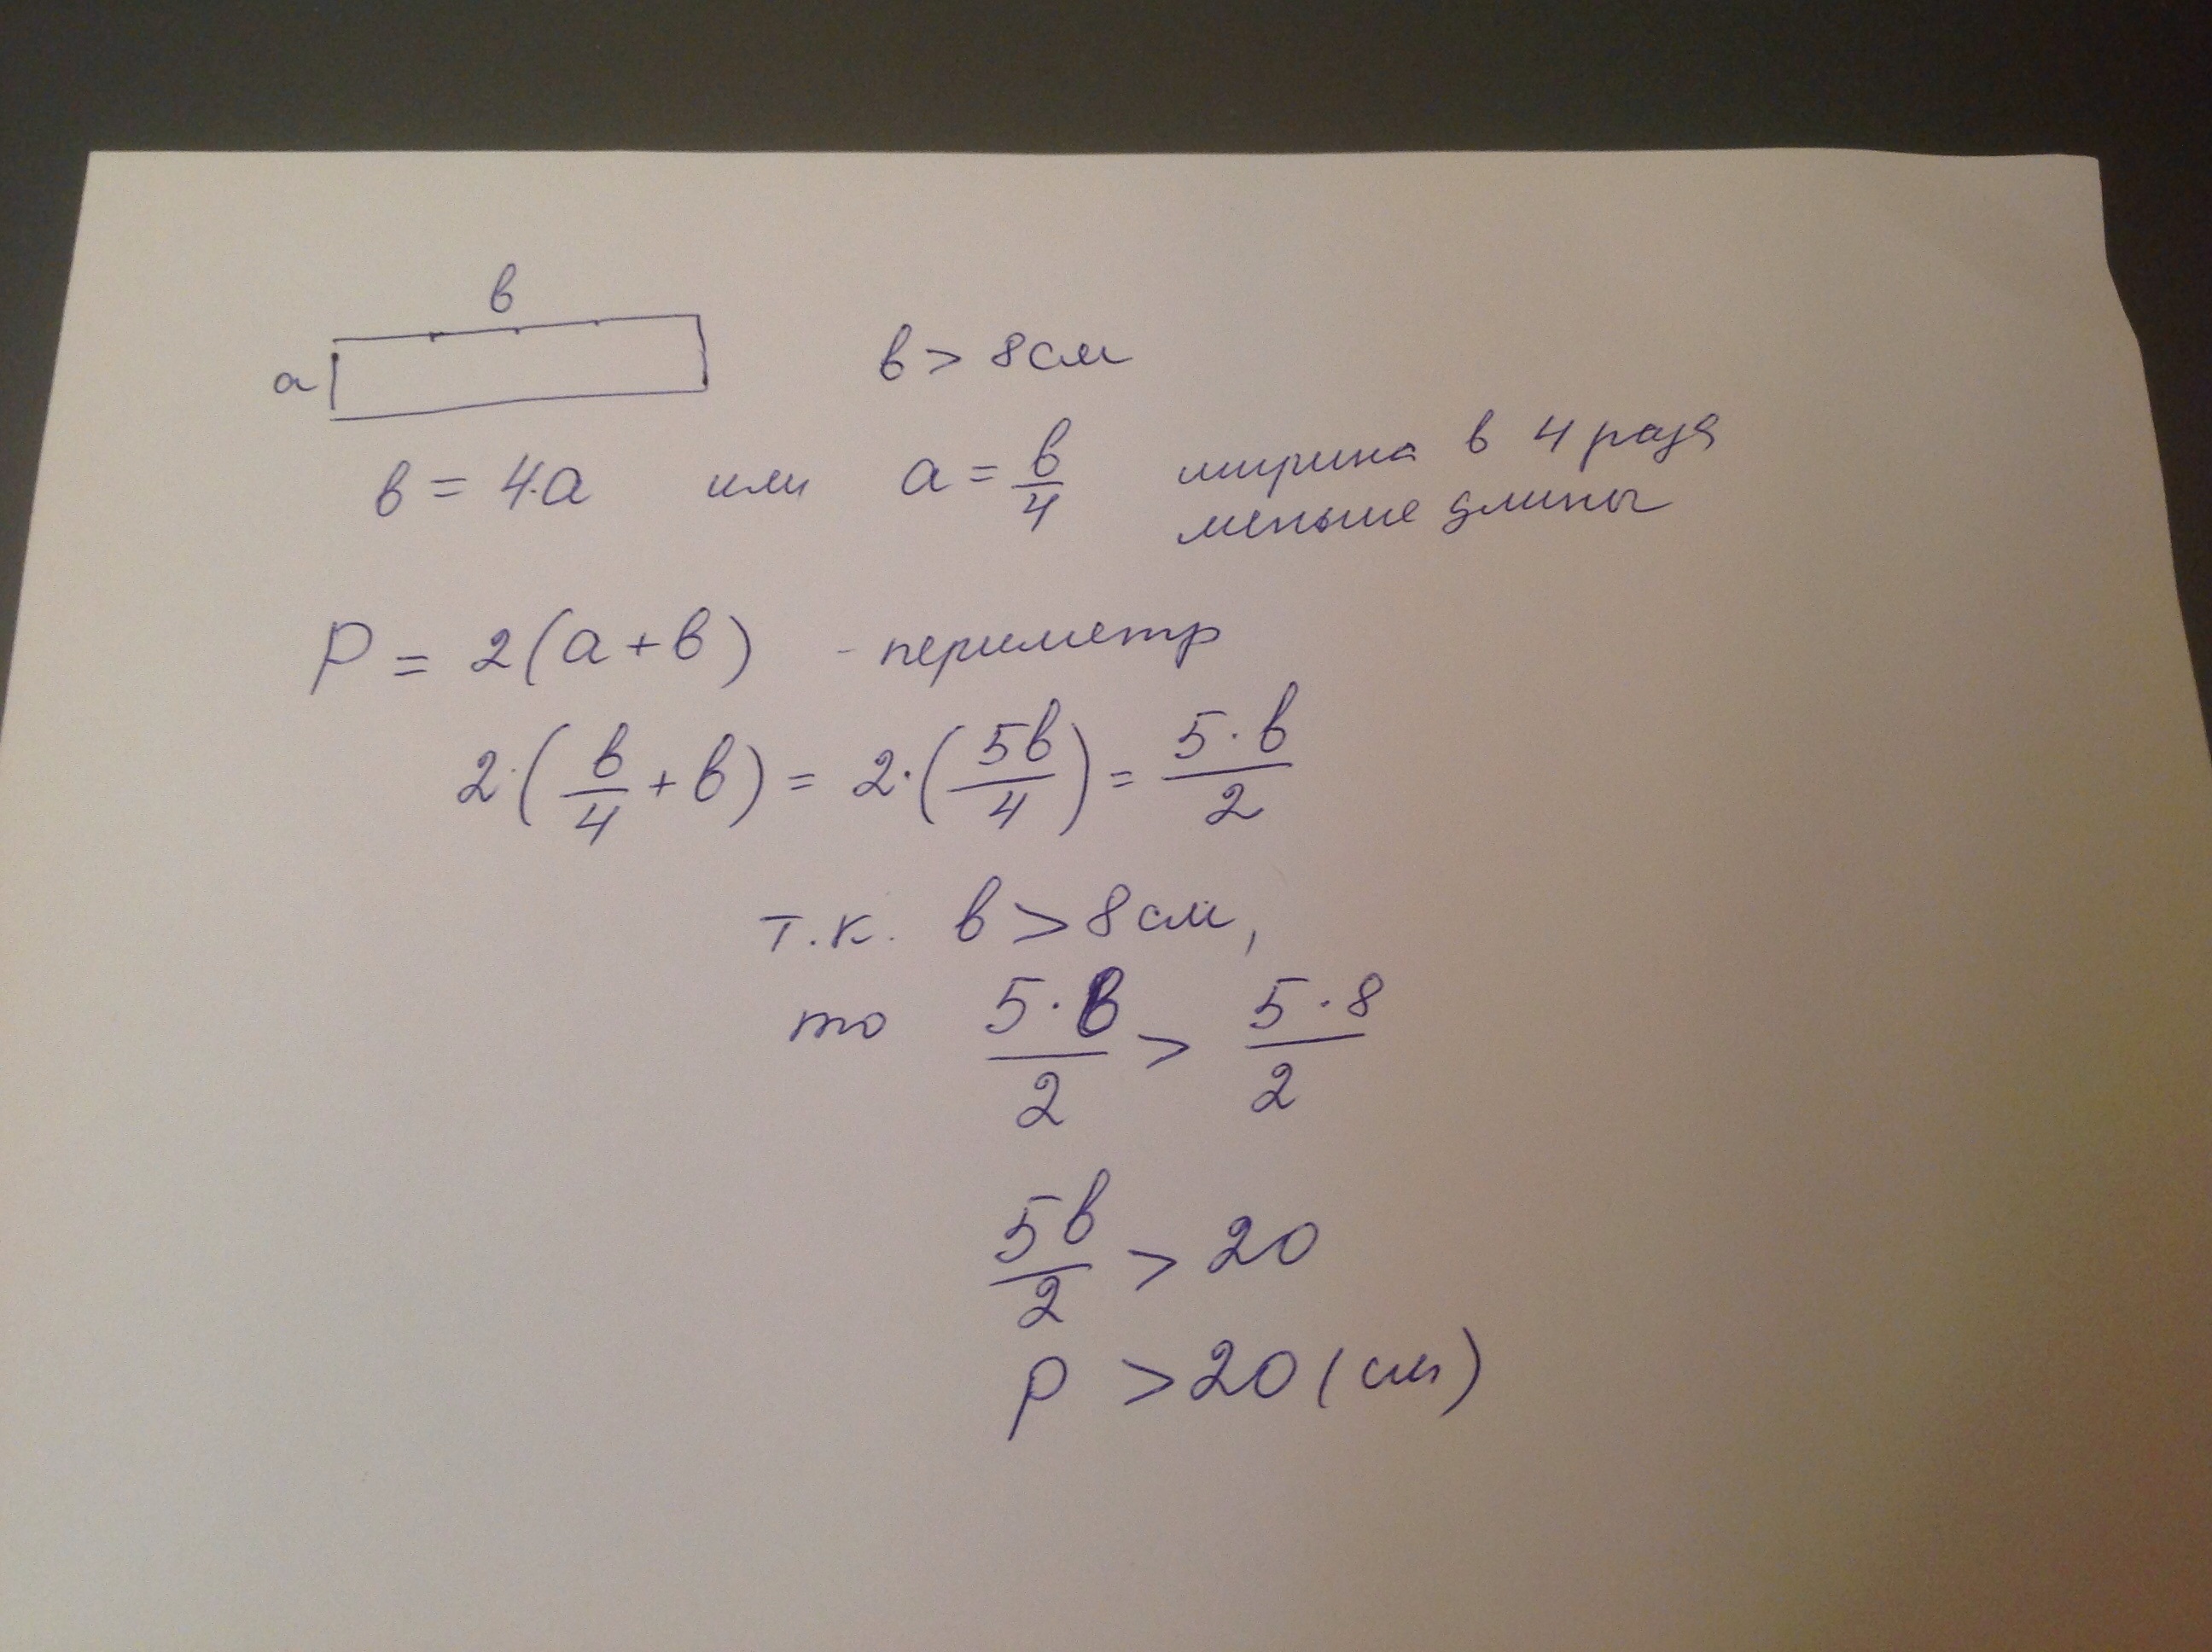 в
а
в > 8 см
в = 4·а или а = в/4 ширина в 4 раза
меньше длины
P = 2(а + в) - периметр
2·(в/4 + в) = 2·(5в/4) = 5·в/2
т.к. в > 8 см,
то 5·в/2 > 5·8/2
5в/2 > 20
P > 20 (см)